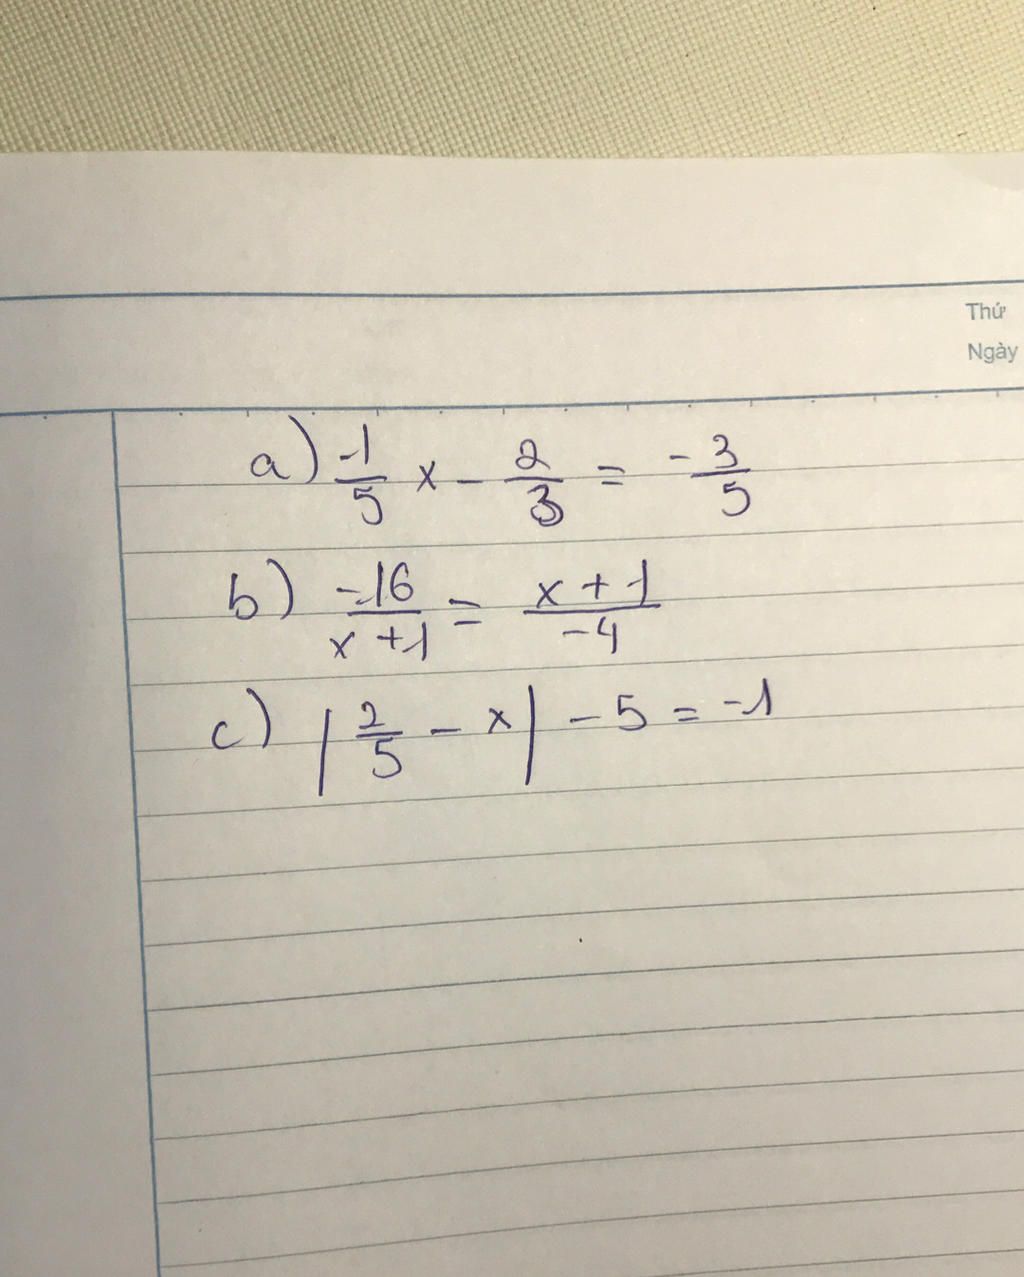 Thứ
Ngày
a) -1/5 x - 2/3 = -3/5
b) -16/x+1 = x+1/-4
c) |2/5 - x| - 5 = -1